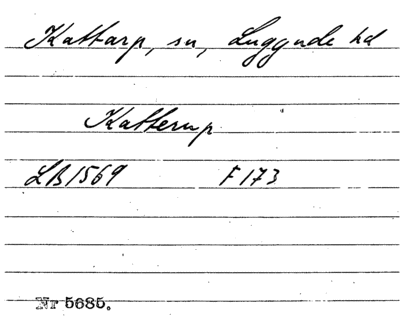 Kattarp, sn, Luggude hd
Katterup
LB 1569 F 173
Nr 5685.